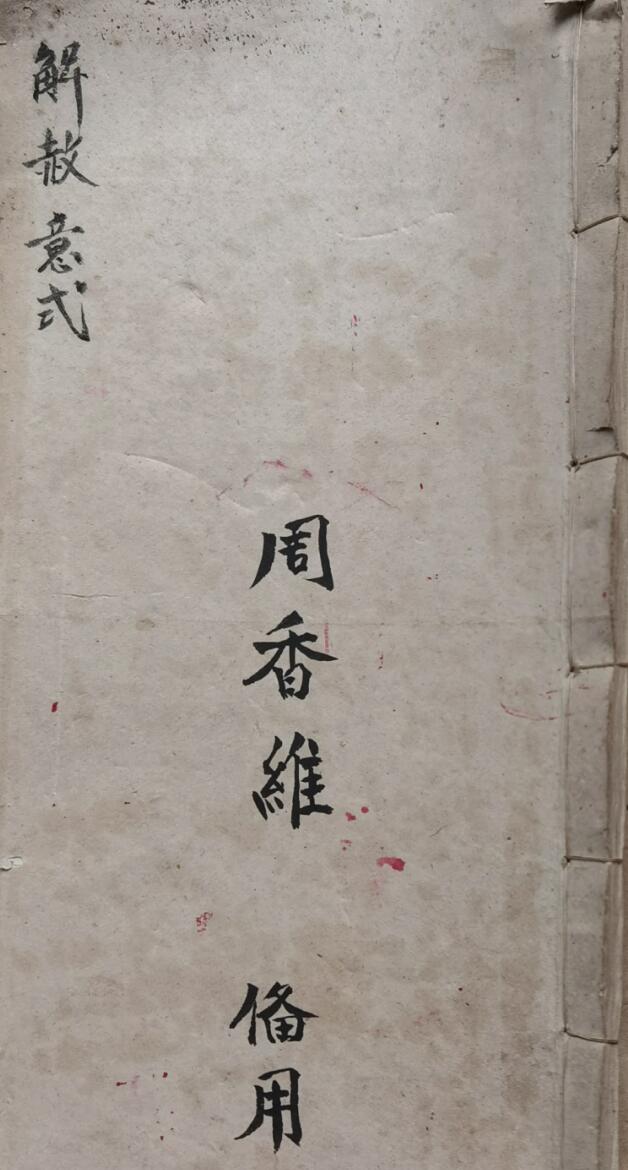 解赦意式
周香維 俻用